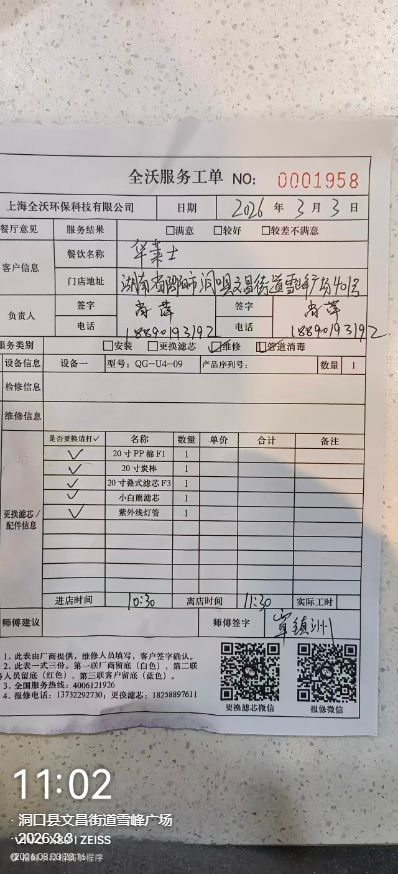 全沃服务工单 NO: 0001958
上海全沃环保科技有限公司 日期 2026 年 3 月 3 日
餐厅意见 服务结果 □满意 □较好 □较差不满意
客户信息 餐饮名称 华莱士
门店地址 湖南省邵阳市洞口县文昌街道雪峰广场401号
负责人 签字 肖萍 签字 肖萍
电话 18890193192 电话 18890193192
服务类别 □安装 □更换滤芯 ☑维修 ☑管道消毒
设备信息 设备一 型号: QG-U4-09 产品序列号: 数量 1
检修信息
维修信息
更换滤芯/配件信息 是否更换请打✓ 名称 数量 单价 合计 备注
✓ 20寸PP棉F1 1
✓ 20寸炭棒 1
✓ 20寸叠式滤芯F3 1
✓ 小白熊滤芯 1
✓ 紫外线灯管 1
进店时间 10:30 离店时间 11:30 实际工时
师傅建议 师傅签字 镇洲
1. 此表由厂商提供，维修人员填写，客户签字确认。
2. 此表一式三份。第一联厂商留底（白色），第二联
人员留底（红色），第三联客户留底（蓝色）。
3. 全国服务热线: 4006121926
4. 报修电话: 13732292730; 更换滤芯: 18258897611
更换滤芯微信 报修微信
11:02
· 洞口县文昌街道雪峰广场
· 2026.3.3
VIVO X80 | ZEISS